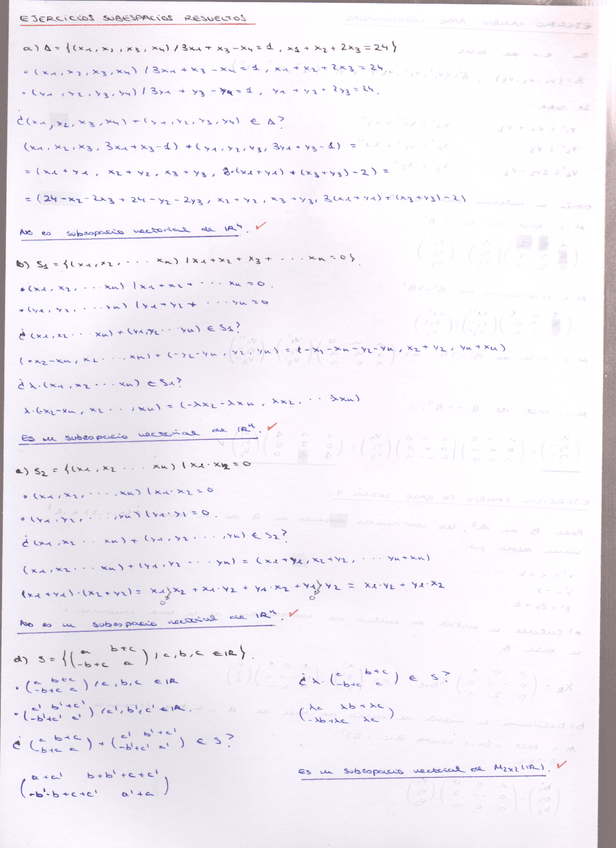 EJERCICIOS SUBESPACIOS RESUELTOS
a) Δ = {(x1, x2, x3, x4) / 3x1 + x3 - x4 = 1, x1 + x2 + 2x3 = 24}
• (x1, x2, x3, x4) / 3x1 + x3 - x4 = 1, x1 + x2 + 2x3 = 24
• (y1, y2, y3, y4) / 3y1 + y3 - y4 = 1, y1 + y2 + 2y3 = 24.
¿(x1, x2, x3, x4) + (y1, y2, y3, y4) ∈ Δ?
(x1, x2, x3, 3x1+x3-1) + (y1, y2, y3, 3y1+y3-1) =
= (x1+y1, x2+y2, x3+y3, 3·(x1+y1) + (x3+y3) - 2) =
= (24-x2-2x3 + 24-y2-2y3, x2+y2, x3+y3, 3(x1+y1) + (x3+y3) - 2)
No es subespacio vectorial de IR⁴.
b) S1 = {(x1, x2, ... xn) / x1 + x2 + x3 + ... xn = 0}.
• (x1, x2, ... xn) / x1 + x2 + ... xn = 0.
• (y1, y2, ... yn) / y1 + y2 + ... yn = 0
¿(x1, x2 ... xn) + (y1, y2 ... yn) ∈ S1?
(-x2-xn, x2, ... xn) + (-y2-yn, y2, yn) = (-x1-xn-y2-yn, x2+y2, yn+xn)
¿λ·(x1, x2 ... xn) ∈ S1?
λ·(x2-xn, x2, ..., xn) = (-λx2-λxn, λx2, ... λxn)
Es un subespacio vectorial de IRⁿ.
c) S2 = {(x1, x2 ... xn) / x1·x2 = 0
• (x1, x2, ..., xn) / x1·x2 = 0
• (y1, y2, ..., yn) / y1·y2 = 0.
¿(x1, x2 ... xn) + (y1, y2, ..., yn) ∈ S2?
(x1, x2, ... xn) + (y1, y2 ... yn) = (x1+y1, x2+y2, ... yn+xn)
(x1+y1)·(x2+y2) = x1·x2 + x1·y2 + y1·x2 + y1·y2 = x1·y2 + y1·x2
0 0
No es un subespacio vectorial de IRⁿ.
d) S = {(a b+c
-b+c a) / a, b, c ∈ IR}.
• (a b+c
-b+c a) / a, b, c ∈ IR
• (a' b'+c'
-b'+c' a') / a', b', c' ∈ IR.
¿(a b+c
-b+c a) + (a' b'+c'
-b'+c' a') ∈ S?
(a+a' b+b'+c+c'
-b'-b+c+c' a'+a)
¿λ·(a b+c
-b+c a) ∈ S?
(λa λb+λc
-λb+λc λa)
Es un subespacio vectorial de M2x2(IR).